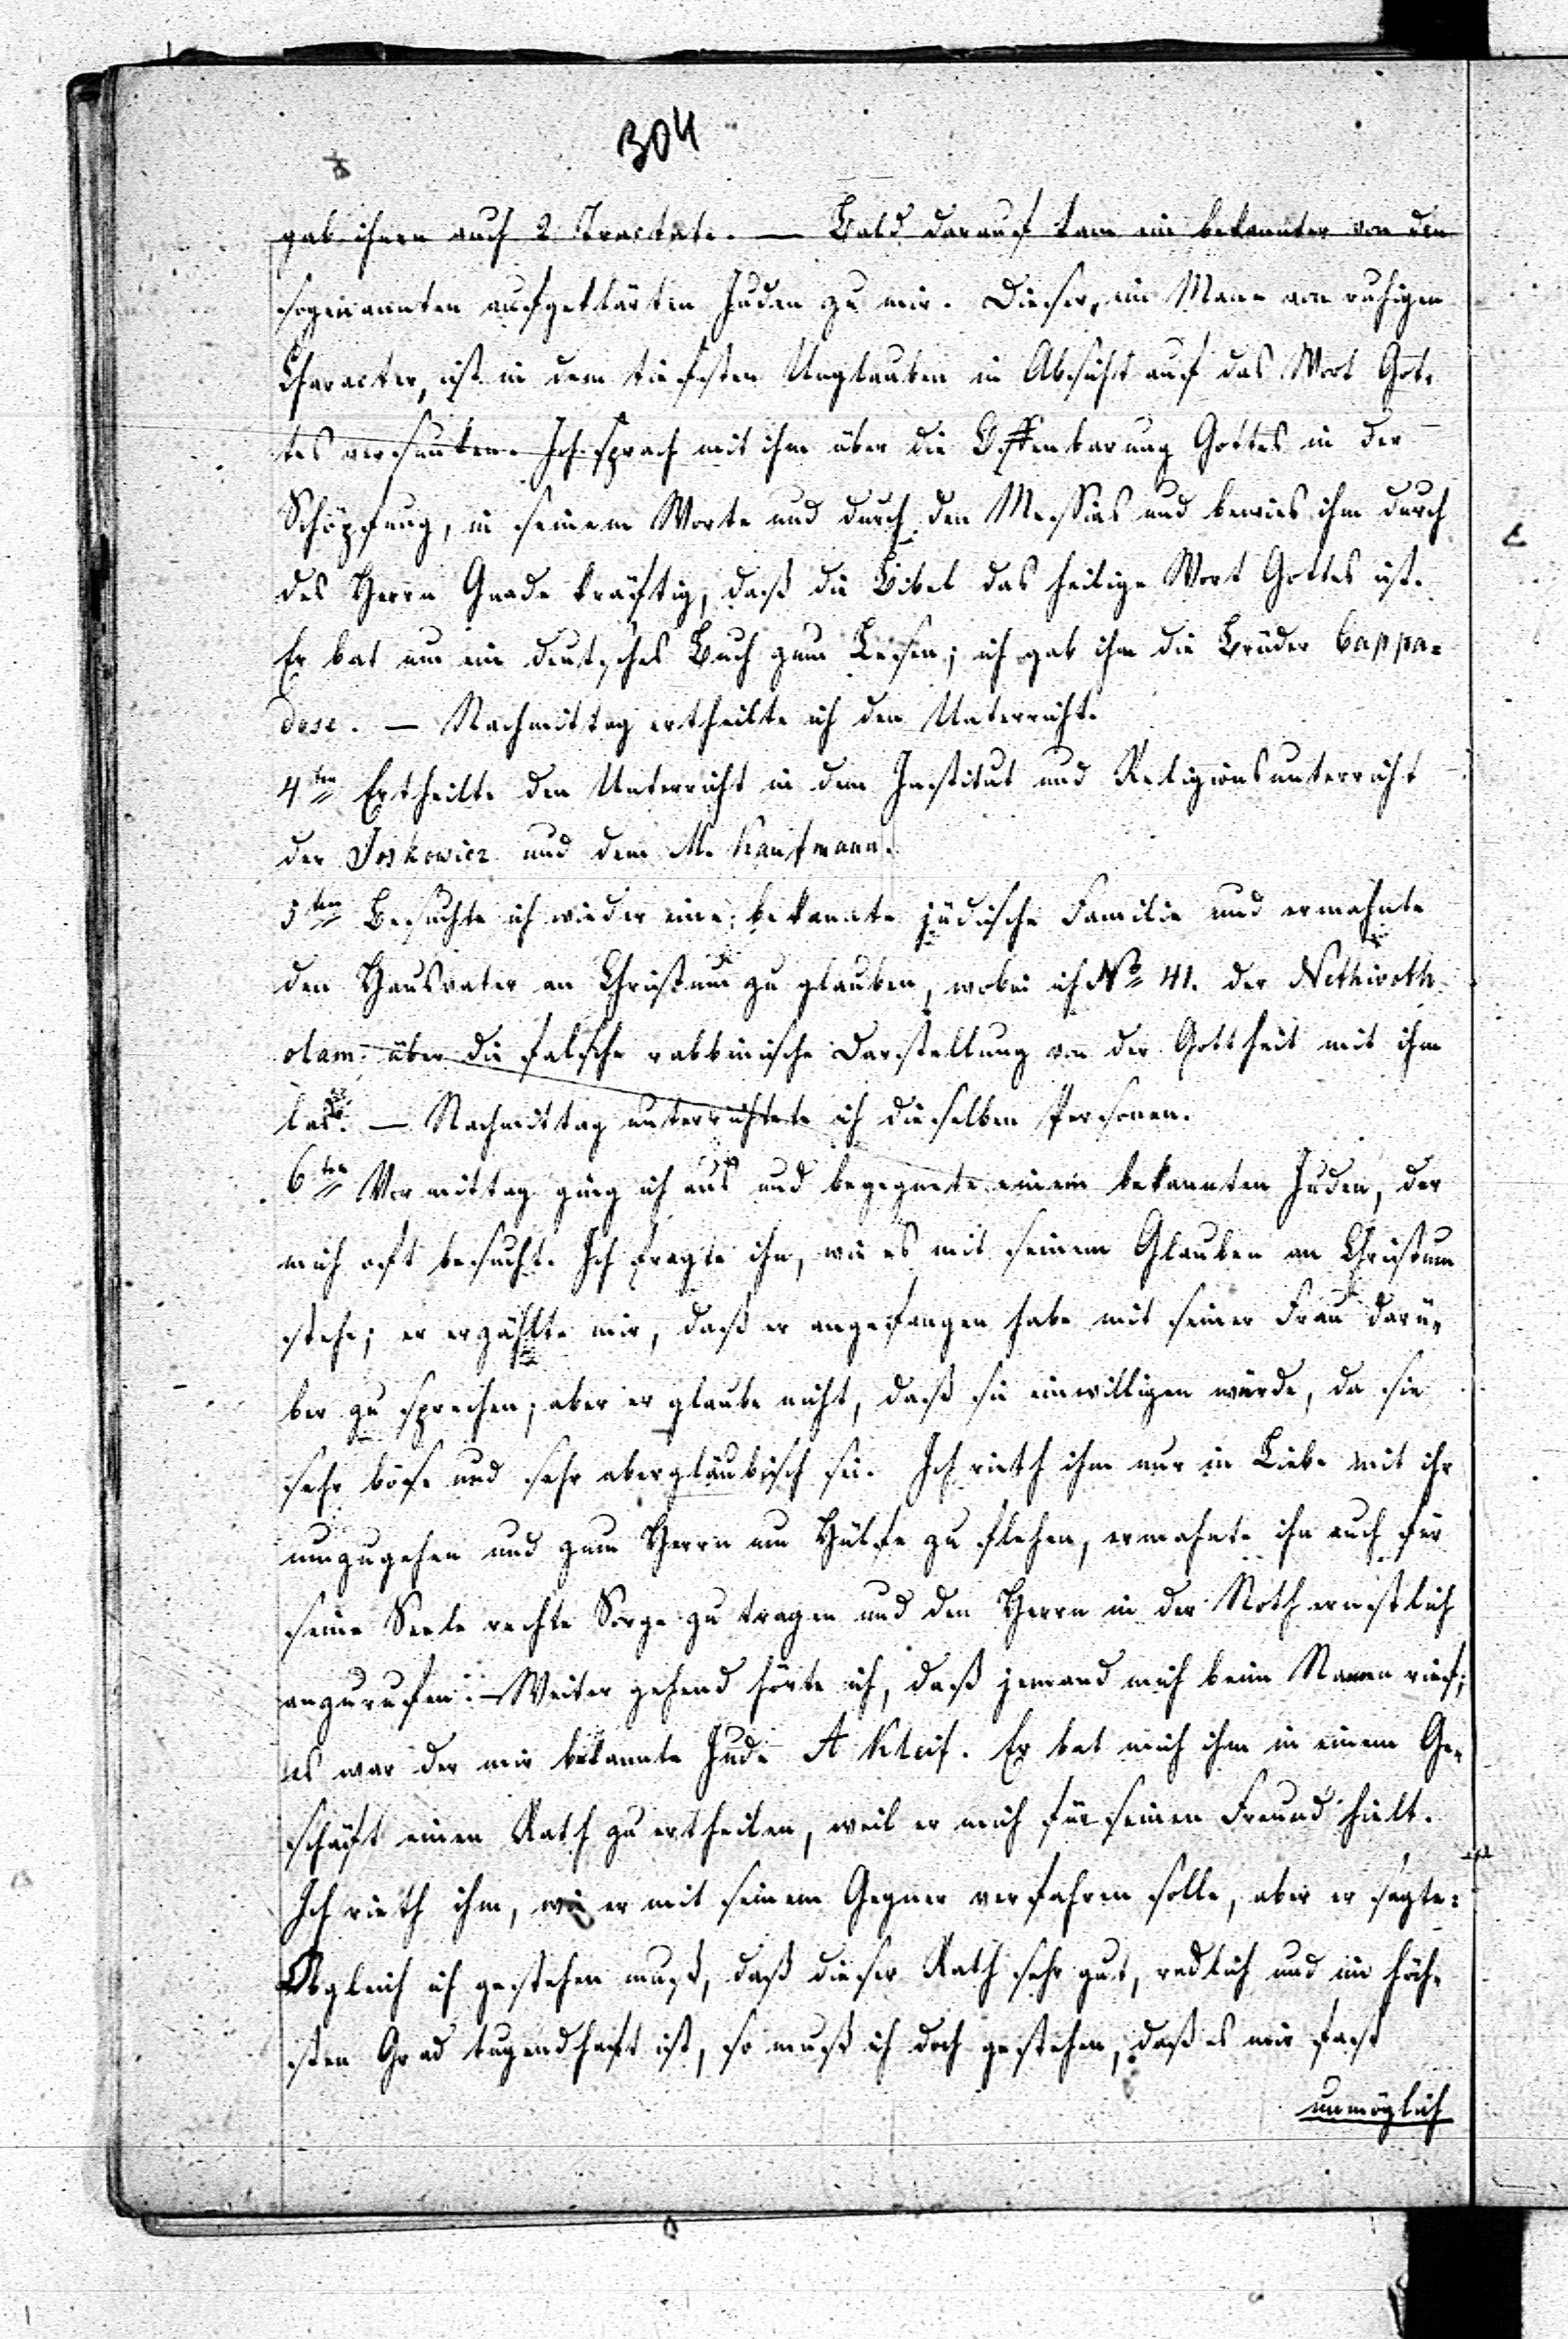 304
gab ihnen auch 2 Tractate. — Bald darauf kam ein bekannter von den
sogenannten aufgeklärten Juden zu mir. Dieser, ein Mann von ruhigem
Character, ist in dem tiefsten Unglauben in Absicht auf das Wort Got-
tes versunken. Ich sprach mit ihm über die Offenbarung Gottes in der
Schöpfung, in seinem Worte und durch den Messias und bewies ihm durch
des Herrn Gnade kräftig, daß die Bibel das heilige Wort Gottes ist.
Er bat um ein deutsches Buch zum Lesen; ich gab ihm die Brüder Cappa-
dose. — Nachmittag ertheilte ich den Unterricht.
4ten Ertheilte den Unterricht in dem Institut und Religionsunterricht
der Joskowicz und dem M. Kaufmann.
5ten Besuchte ich wieder eine bekannte jüdische Familie und ermahnte
den Hausvater an Christum zu glauben, wobei ich No 41. der Nethivoth
olam über die falsche rabbinische Darstellung von der Gottheit mit ihm
las. — Nachmittag unterrichtete ich dieselben Personen.
6ten Vormittag ging ich aus und begegnete einem bekannten Juden, der
mich oft besucht. Ich fragte ihn, wie es mit seinem Glauben an Christum
stehe; er erzählte mir, daß er angefangen habe mit seiner Frau darü-
ber zu sprechen, aber er glaube nicht, daß sie einwilligen würde, da sie
sehr böse und sehr abergläubisch sei. Ich rieth ihm nur in Liebe mit ihr
umzugehen und zum Herrn um Hülfe zu flehen, ermahnte ihn auch für
seine Seele rechte Sorge zu tragen und den Herrn in der Noth ernstlich
anzurufen. — Weiter gehend hörte ich, daß jemand mich beim Namen rief;
es war der mir bekannte Jude A Kleif. Er bat mich ihm in einem Ge-
schäft einen Rath zu ertheilen, weil er mich für seinen Freund hielt.
Ich rieth ihm, wie er mit seinem Gegner verfahren solle, aber er sagte:
Obgleich ich gestehen muß, daß dieser Rath sehr gut, redlich und im höch-
sten Grad tugendhaft ist, so muß ich doch gestehen, daß es mir fast
unmöglich